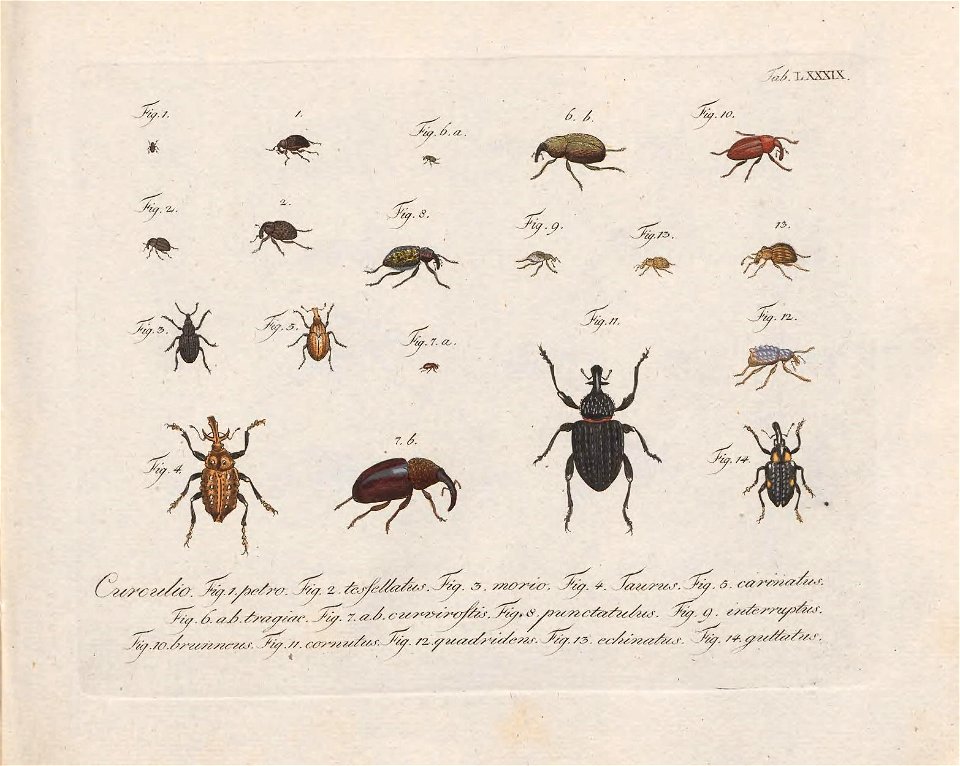 Tab. LXXXIX.
Fig. 1. 1. Fig. 6. a. 6. b. Fig. 10.
Fig. 2. 2. Fig. 8. Fig. 9. Fig. 13. 13.
Fig. 3. Fig. 5. Fig. 7. a. Fig. 11. Fig. 12.
Fig. 4. 7. b. Fig. 14.
Curculio. Fig. 1. petro. Fig. 2. tesſellatus. Fig. 3. morio. Fig. 4. Taurus. Fig. 5. carinatus.
Fig. 6. a.b. tragiae. Fig. 7. a.b. curviroſtis. Fig. 8 punctatulus. Fig. 9. interruptus.
Fig. 10. brunneus. Fig. 11. cornutus. Fig. 12. quadridens. Fig. 13. echinatus. Fig. 14. guttatus.